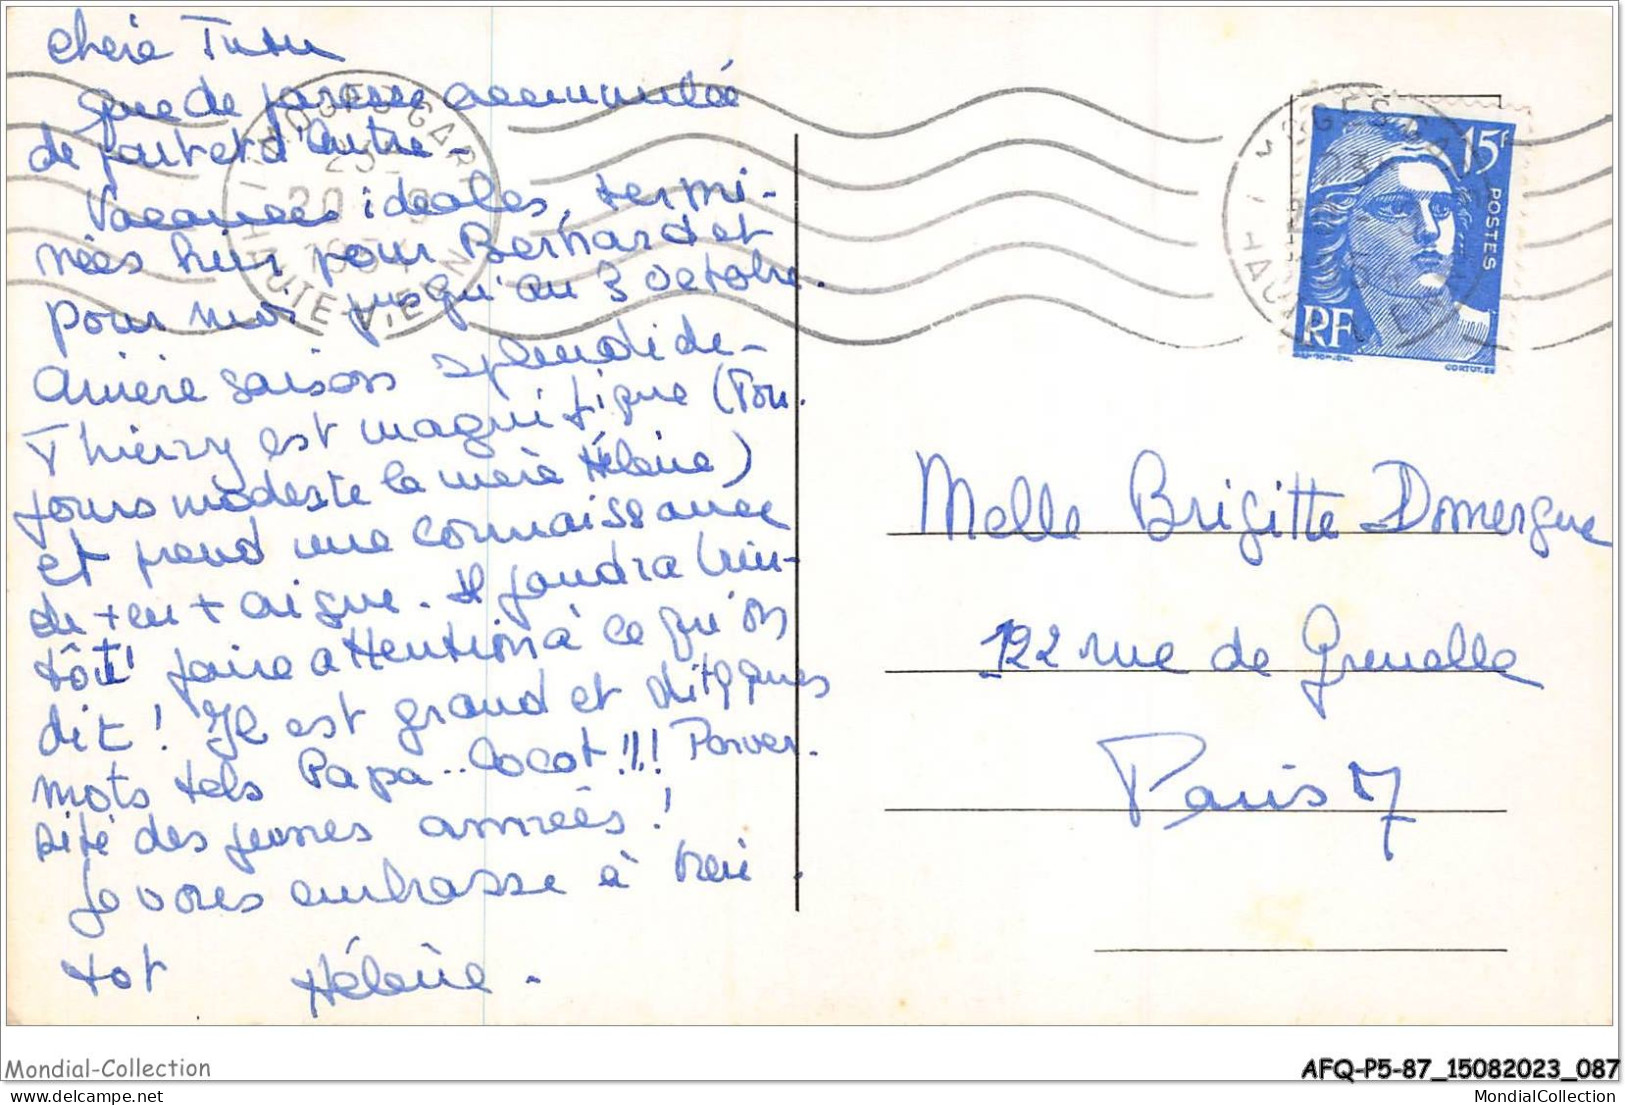 Chère Tutu
que de paresse accumulée
de part et d'autre -
Vacances idéales, termi-
nées hier pour Bernard et
pour moi jusqu'au 3 octobre.
Arrière saison splendide -
Thierry est magnifique (Tou-
jours modeste la mère Hélène)
et prend une connaissance
de + en + aigue. Il faudra bien-
tôt! faire attention à ce qu'on
dit! Il est grand et dit qques
mots tels Papa.. Cocot!!! Perver-
sité des jeunes années!
Je vous embrasse à bien
tot Hélène.
LIMOGES GARE
HAUTE-VIENNE
15F
POSTES
RF
Melle Brigitte Domergue
122 rue de Grenelle
Paris 7
Mondial-Collection
AFQ-P5-87_15082023_087
MondialCollection